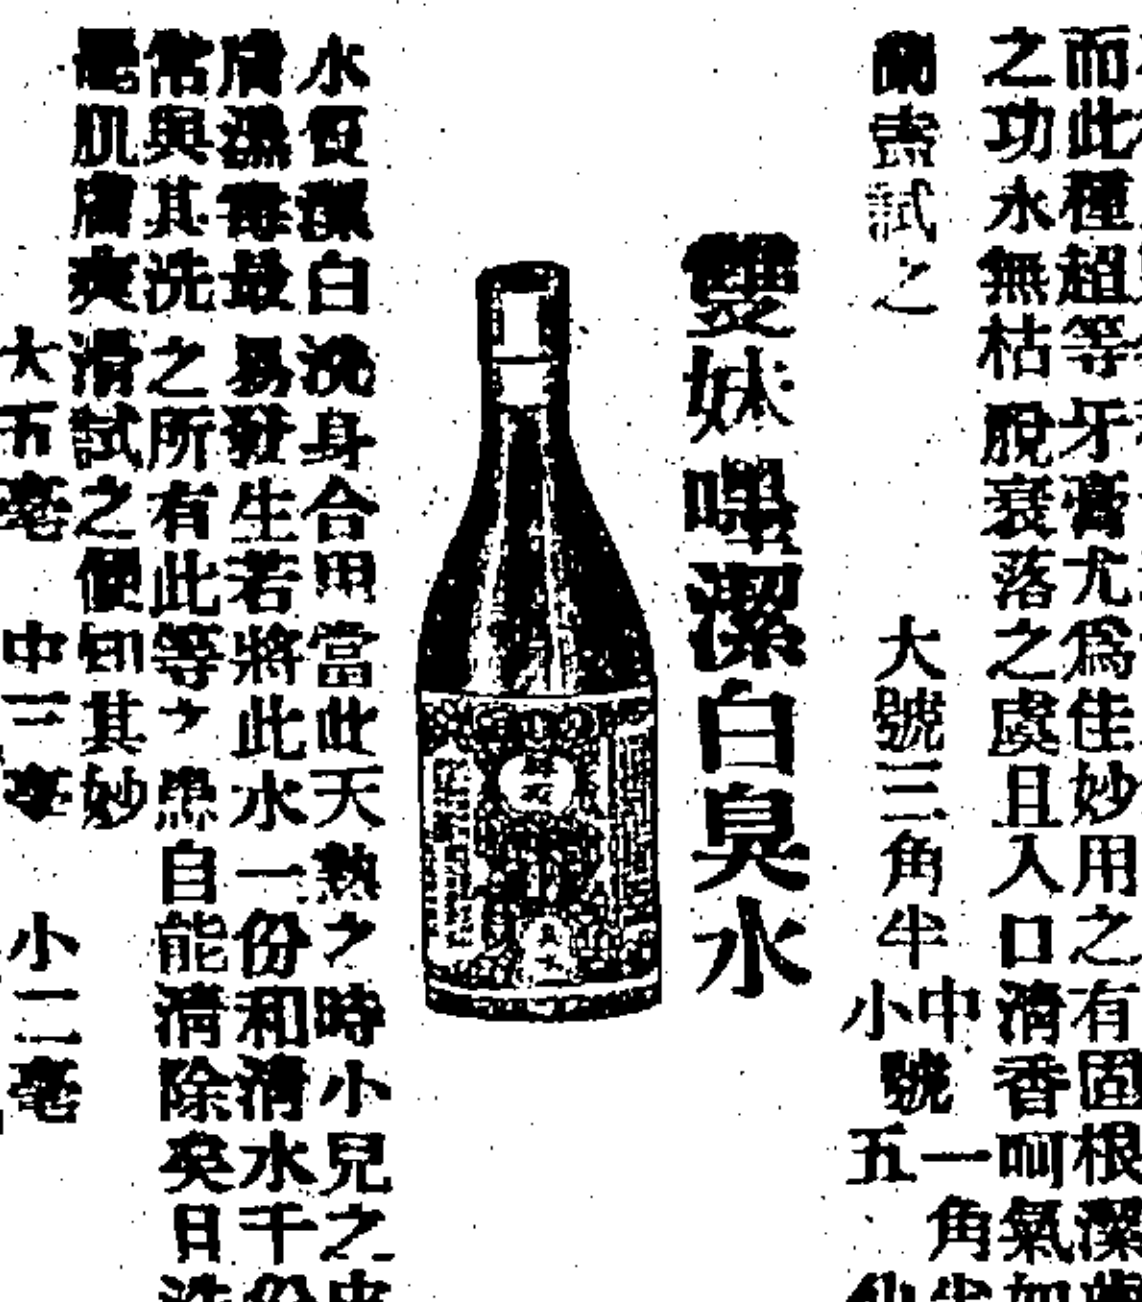 而此種超等牙膏尤爲佳妙用之有固根潔
之功永無枯脫衰落之處且入口清香呵氣如
蘭盍試之
大號三角半
中號一角半
小號五仙
雙妹嚜潔白臭水
水質潔白洗身合用當此天熱之時小兒之皮
膚濕毒最易發生若將此水一份和清水千份
常與其洗之所有此等之患自能清除矣日洗
毫肌膚爽滑試之便知其妙
大五毫 中三毫 小二毫